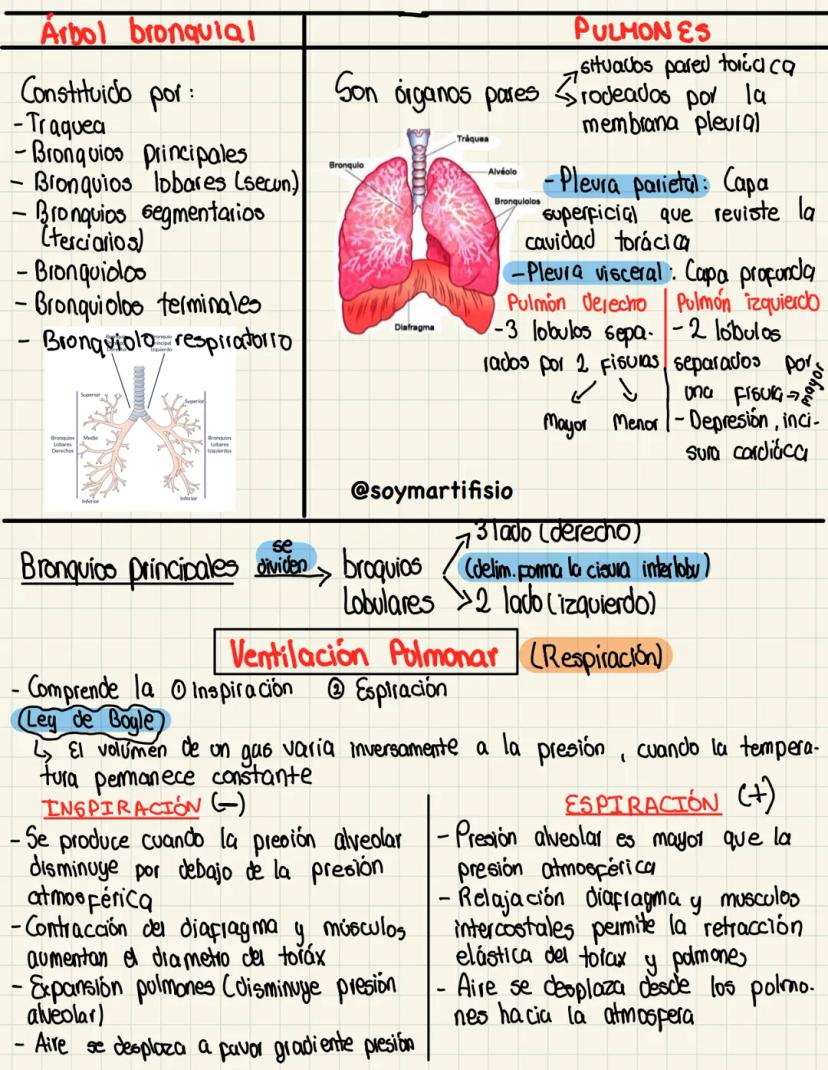 Árbol bronquial
Constituido por:
- Traquea
- Bronquios principales
- Bronquios lobares (secun)
- Bronquios segmentarios
(terciarios)
- Bronquiolos
- Bronquiolos terminales
- Bronquiolo respiratorio
Principal
Izquierdo
Superior
Superior
Bronquios
Lobares
Derechos
Medio
Bronquios
Lobares
Izquierdos
Inferior
Inferior
PULMONES
Son órganos pares
situados pared torácica
rodeados por la
membrana pleural
Tráquea
Bronquio
Alvéolo
Bronquiolos
Diafragma
- Pleura parietal: Capa
superficial que reviste la
cavidad torácia
- Pleura visceral: Capa profunda
Pulmón derecho
- 3 lobulos sepa-
rados por 2 fisuras
Mayor Menor
Pulmón izquierdo
- 2 lóbulos
separados por
una fisura → mayor
- Depresión, inci-
sura cardiáca
@soymartifisio
Bronquios principales se dividen → broquios
lobulares
3 lado (derecho)
(delim. forma la cisura interlobu)
2 lado (izquierdo)
Ventilación Pulmonar (Respiración)
- Comprende la ① Inspiración ② Espiración
(Ley de Boyle)
↳ El volúmen de un gas varia inversamente a la presión, cuando la tempera-
tura permanece constante
INSPIRACIÓN (-)
- Se produce cuando la presión alveolar
disminuye por debajo de la presión
atmosférica
- Contracción del diafragma y músculos
aumentan el diametro del toráx
- Expansión pulmones (disminuye presión
alveolar)
- Aire se desplaza a favor gradiente presión
ESPIRACIÓN (+)
- Presión alveolar es mayor que la
presión atmosférica
- Relajación diafragma y musculos
intercostales permite la retracción
elástica del torax y pulmones
- Aire se desplaza desde los pulmo-
nes hacia la atmosfera